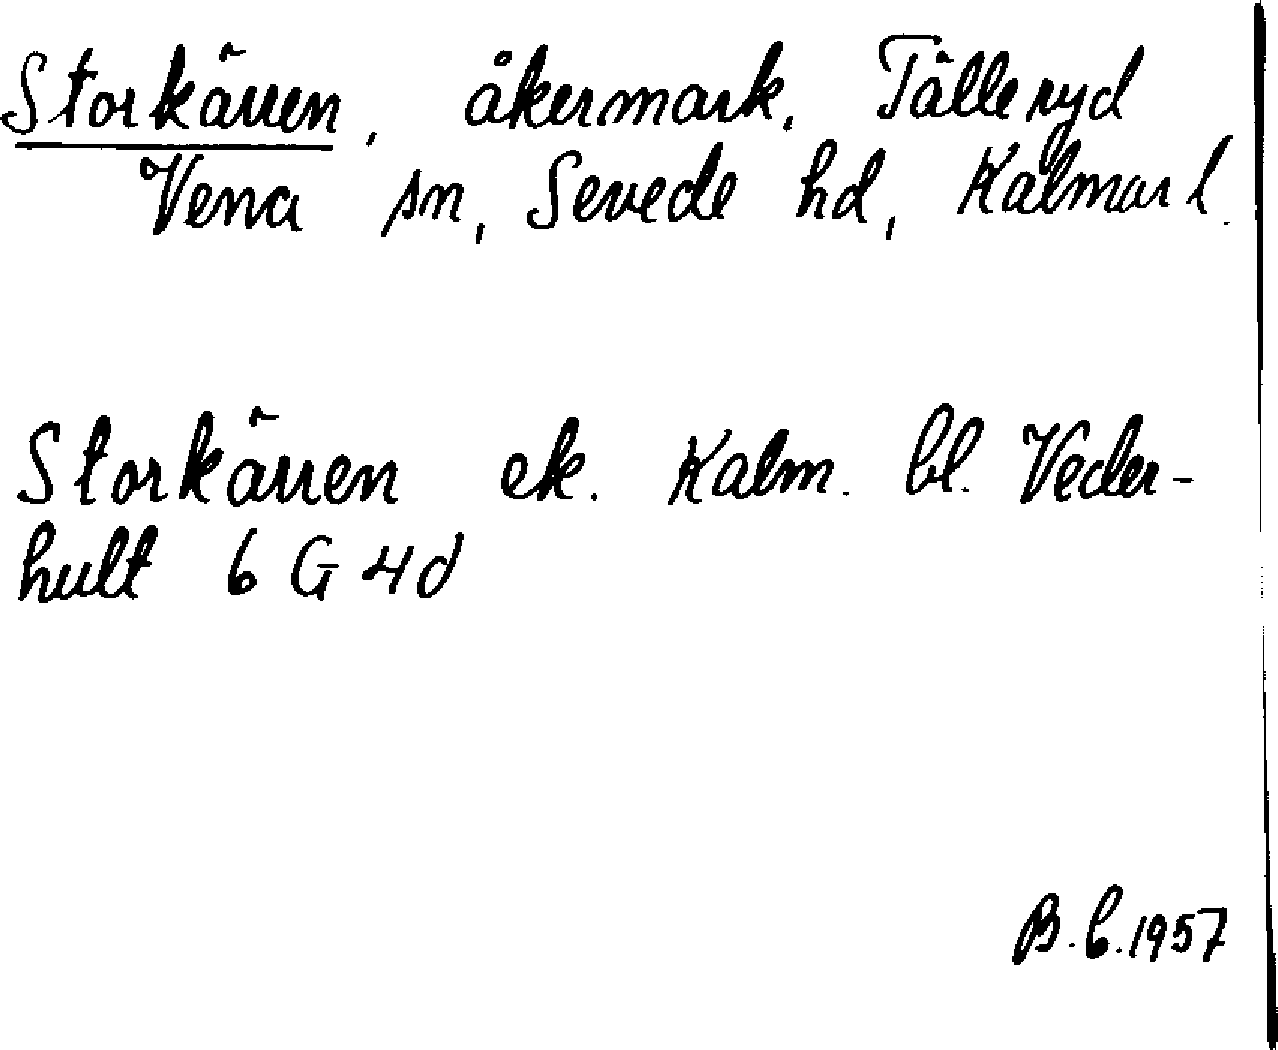 Storkärren, åkermark, Tälleryd
Vena sn, Sevede hd, Kalmar l.
Storkärren ek. Kalm. bl. Veder-
hult 6 G 4d
B.L. 1957